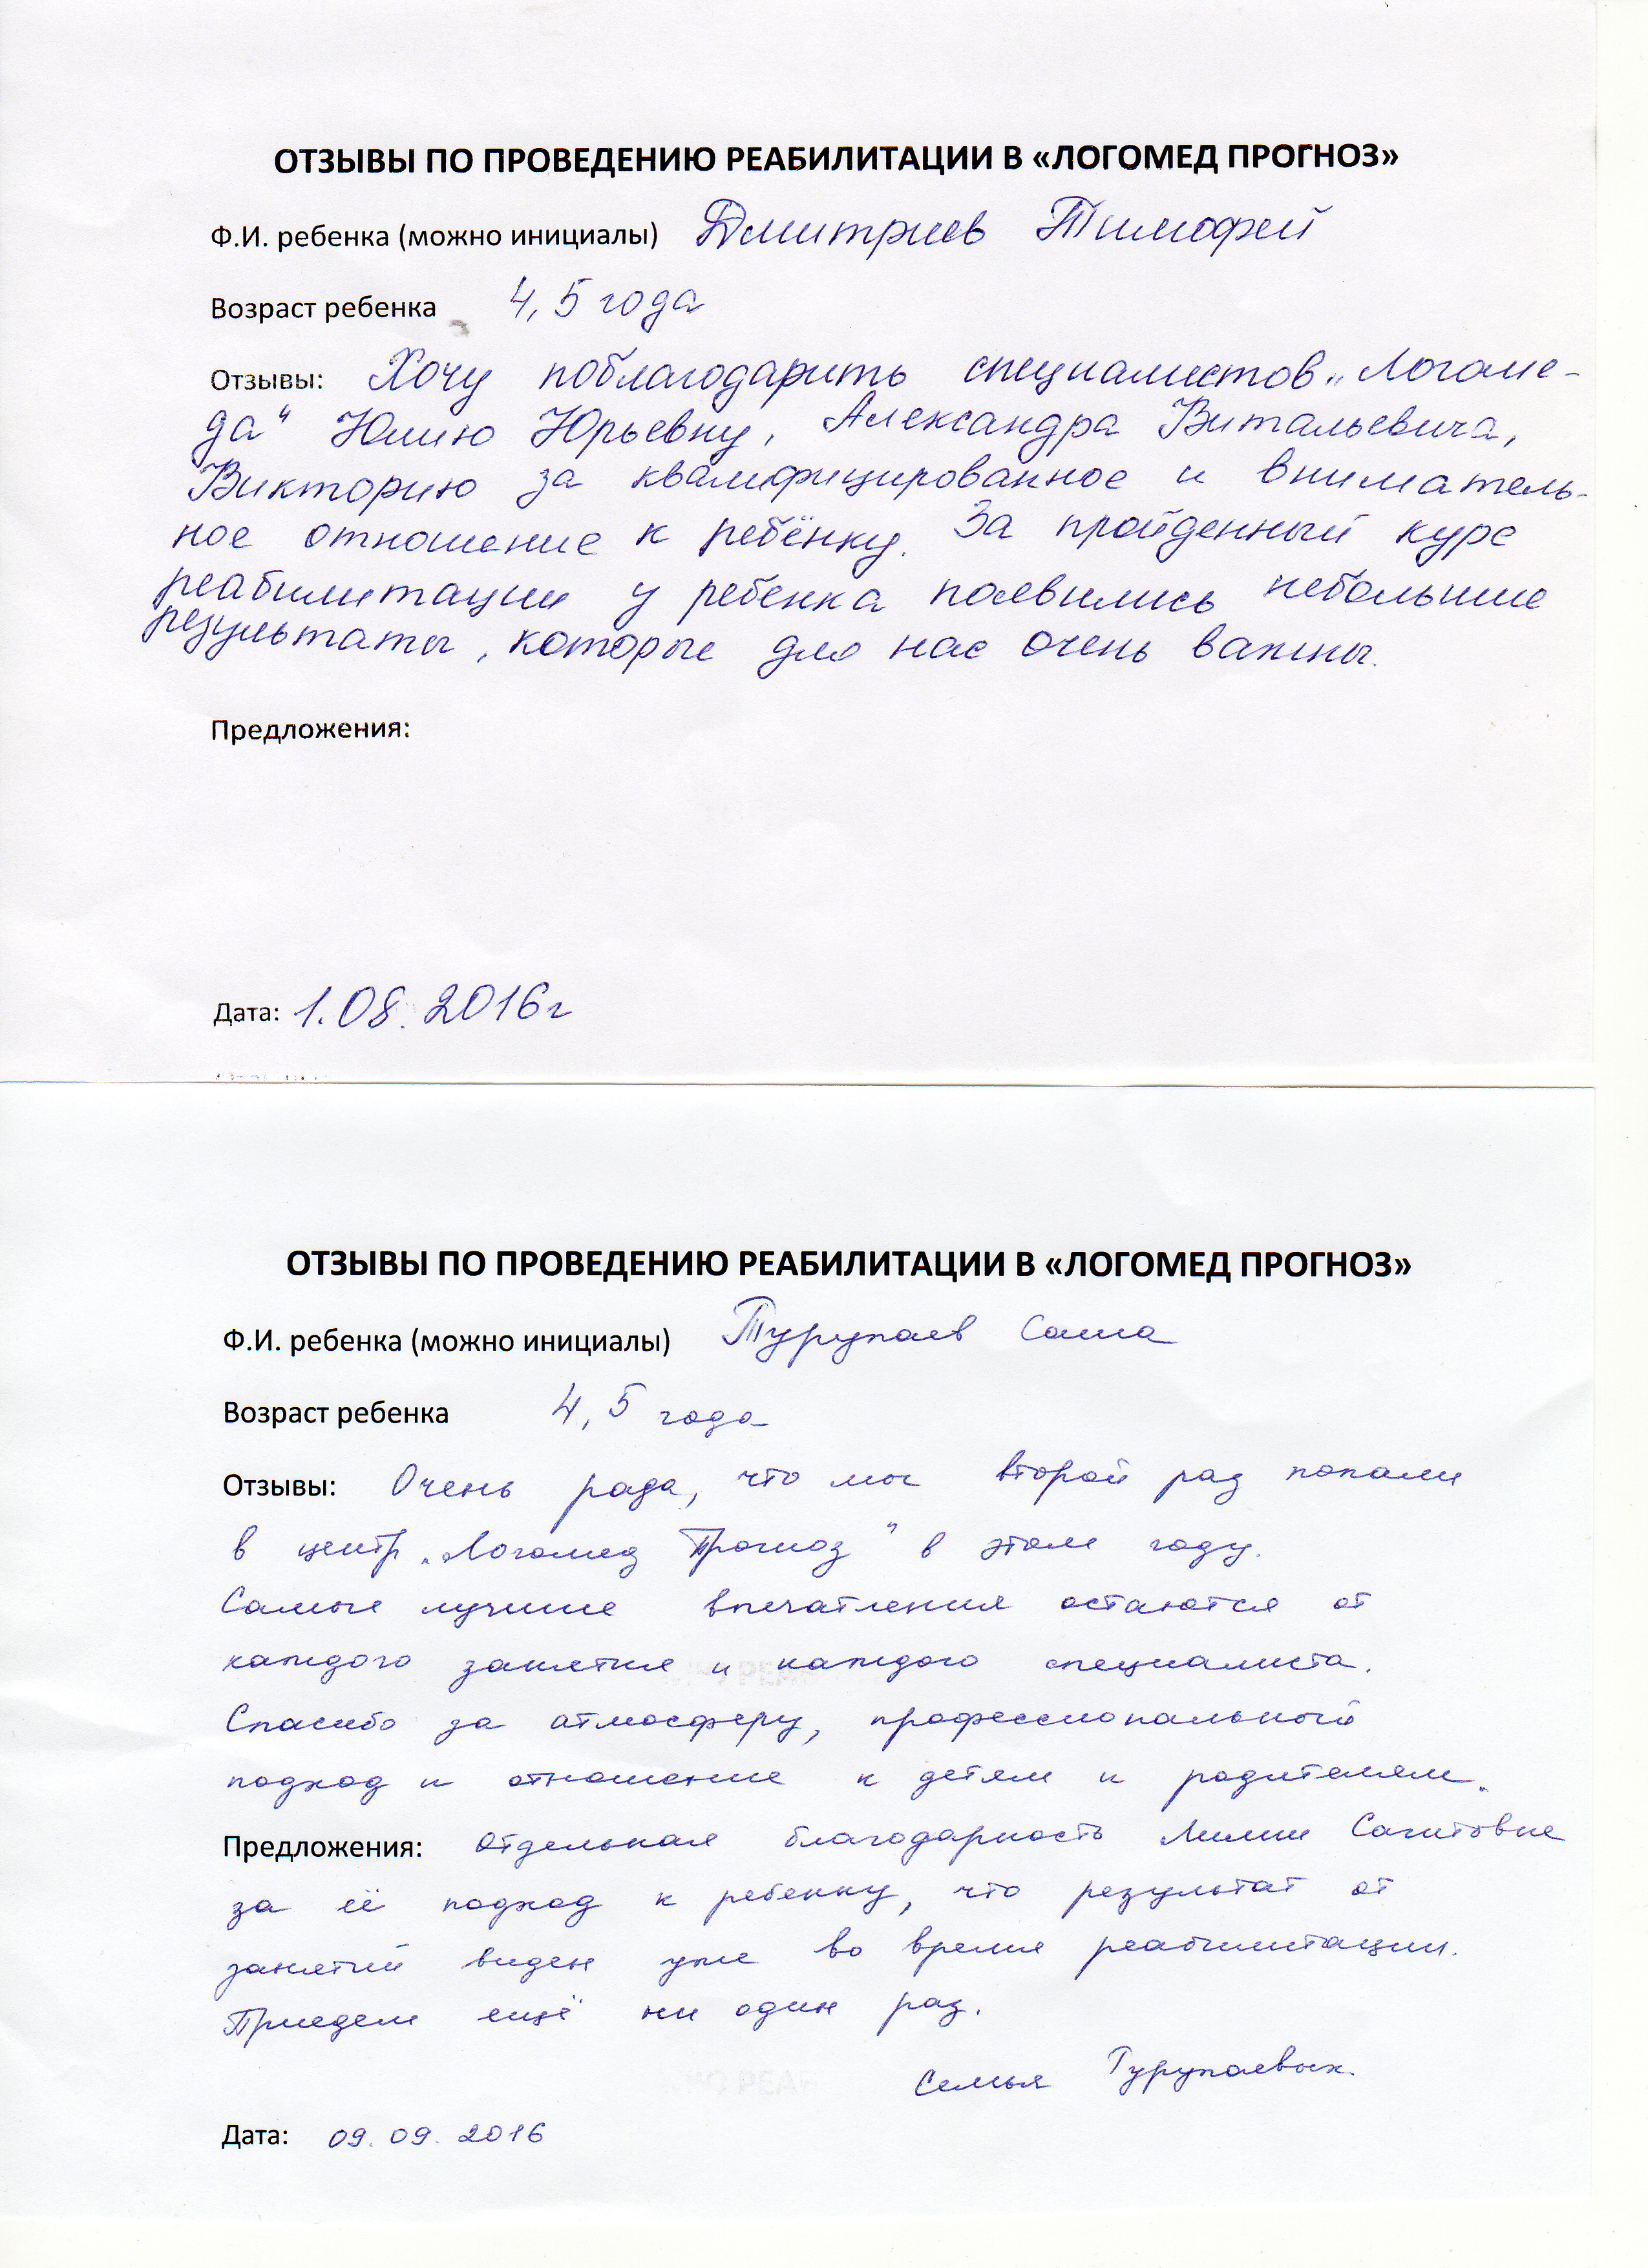 ОТЗЫВЫ ПО ПРОВЕДЕНИЮ РЕАБИЛИТАЦИИ В «ЛОГОМЕД ПРОГНОЗ»
Ф.И. ребенка (можно инициалы) Дмитриев Тимофей
Возраст ребенка 4,5 года
Отзывы: Хочу поблагодарить специалистов „Логоме-
да“ Юлию Юрьевну, Александра Витальевича,
Викторию за квалифицированное и вниматель-
ное отношение к ребёнку. За пройденный курс
реабилитации у ребенка появились небольшие
результаты, которые для нас очень важны.
Предложения:
Дата: 1.08.2016г
ОТЗЫВЫ ПО ПРОВЕДЕНИЮ РЕАБИЛИТАЦИИ В «ЛОГОМЕД ПРОГНОЗ»
Ф.И. ребенка (можно инициалы) Турупаев Саша
Возраст ребенка 4,5 года
Отзывы: Очень рада, что мы второй раз попали
в центр „Логомед Прогноз" в этом году.
Самые лучшие впечатления остаются от
каждого занятия и каждого специалиста.
Спасибо за атмосферу, профессиональный
подход и отношение к детям и родителям.
Предложения: Отдельная благодарность Лилии Сагитовне
за её подход к ребенку, что результат от
занятий виден уже во время реабилитации.
Приедем ещё ни один раз.
Семья Турупаевых.
Дата: 09.09.2016